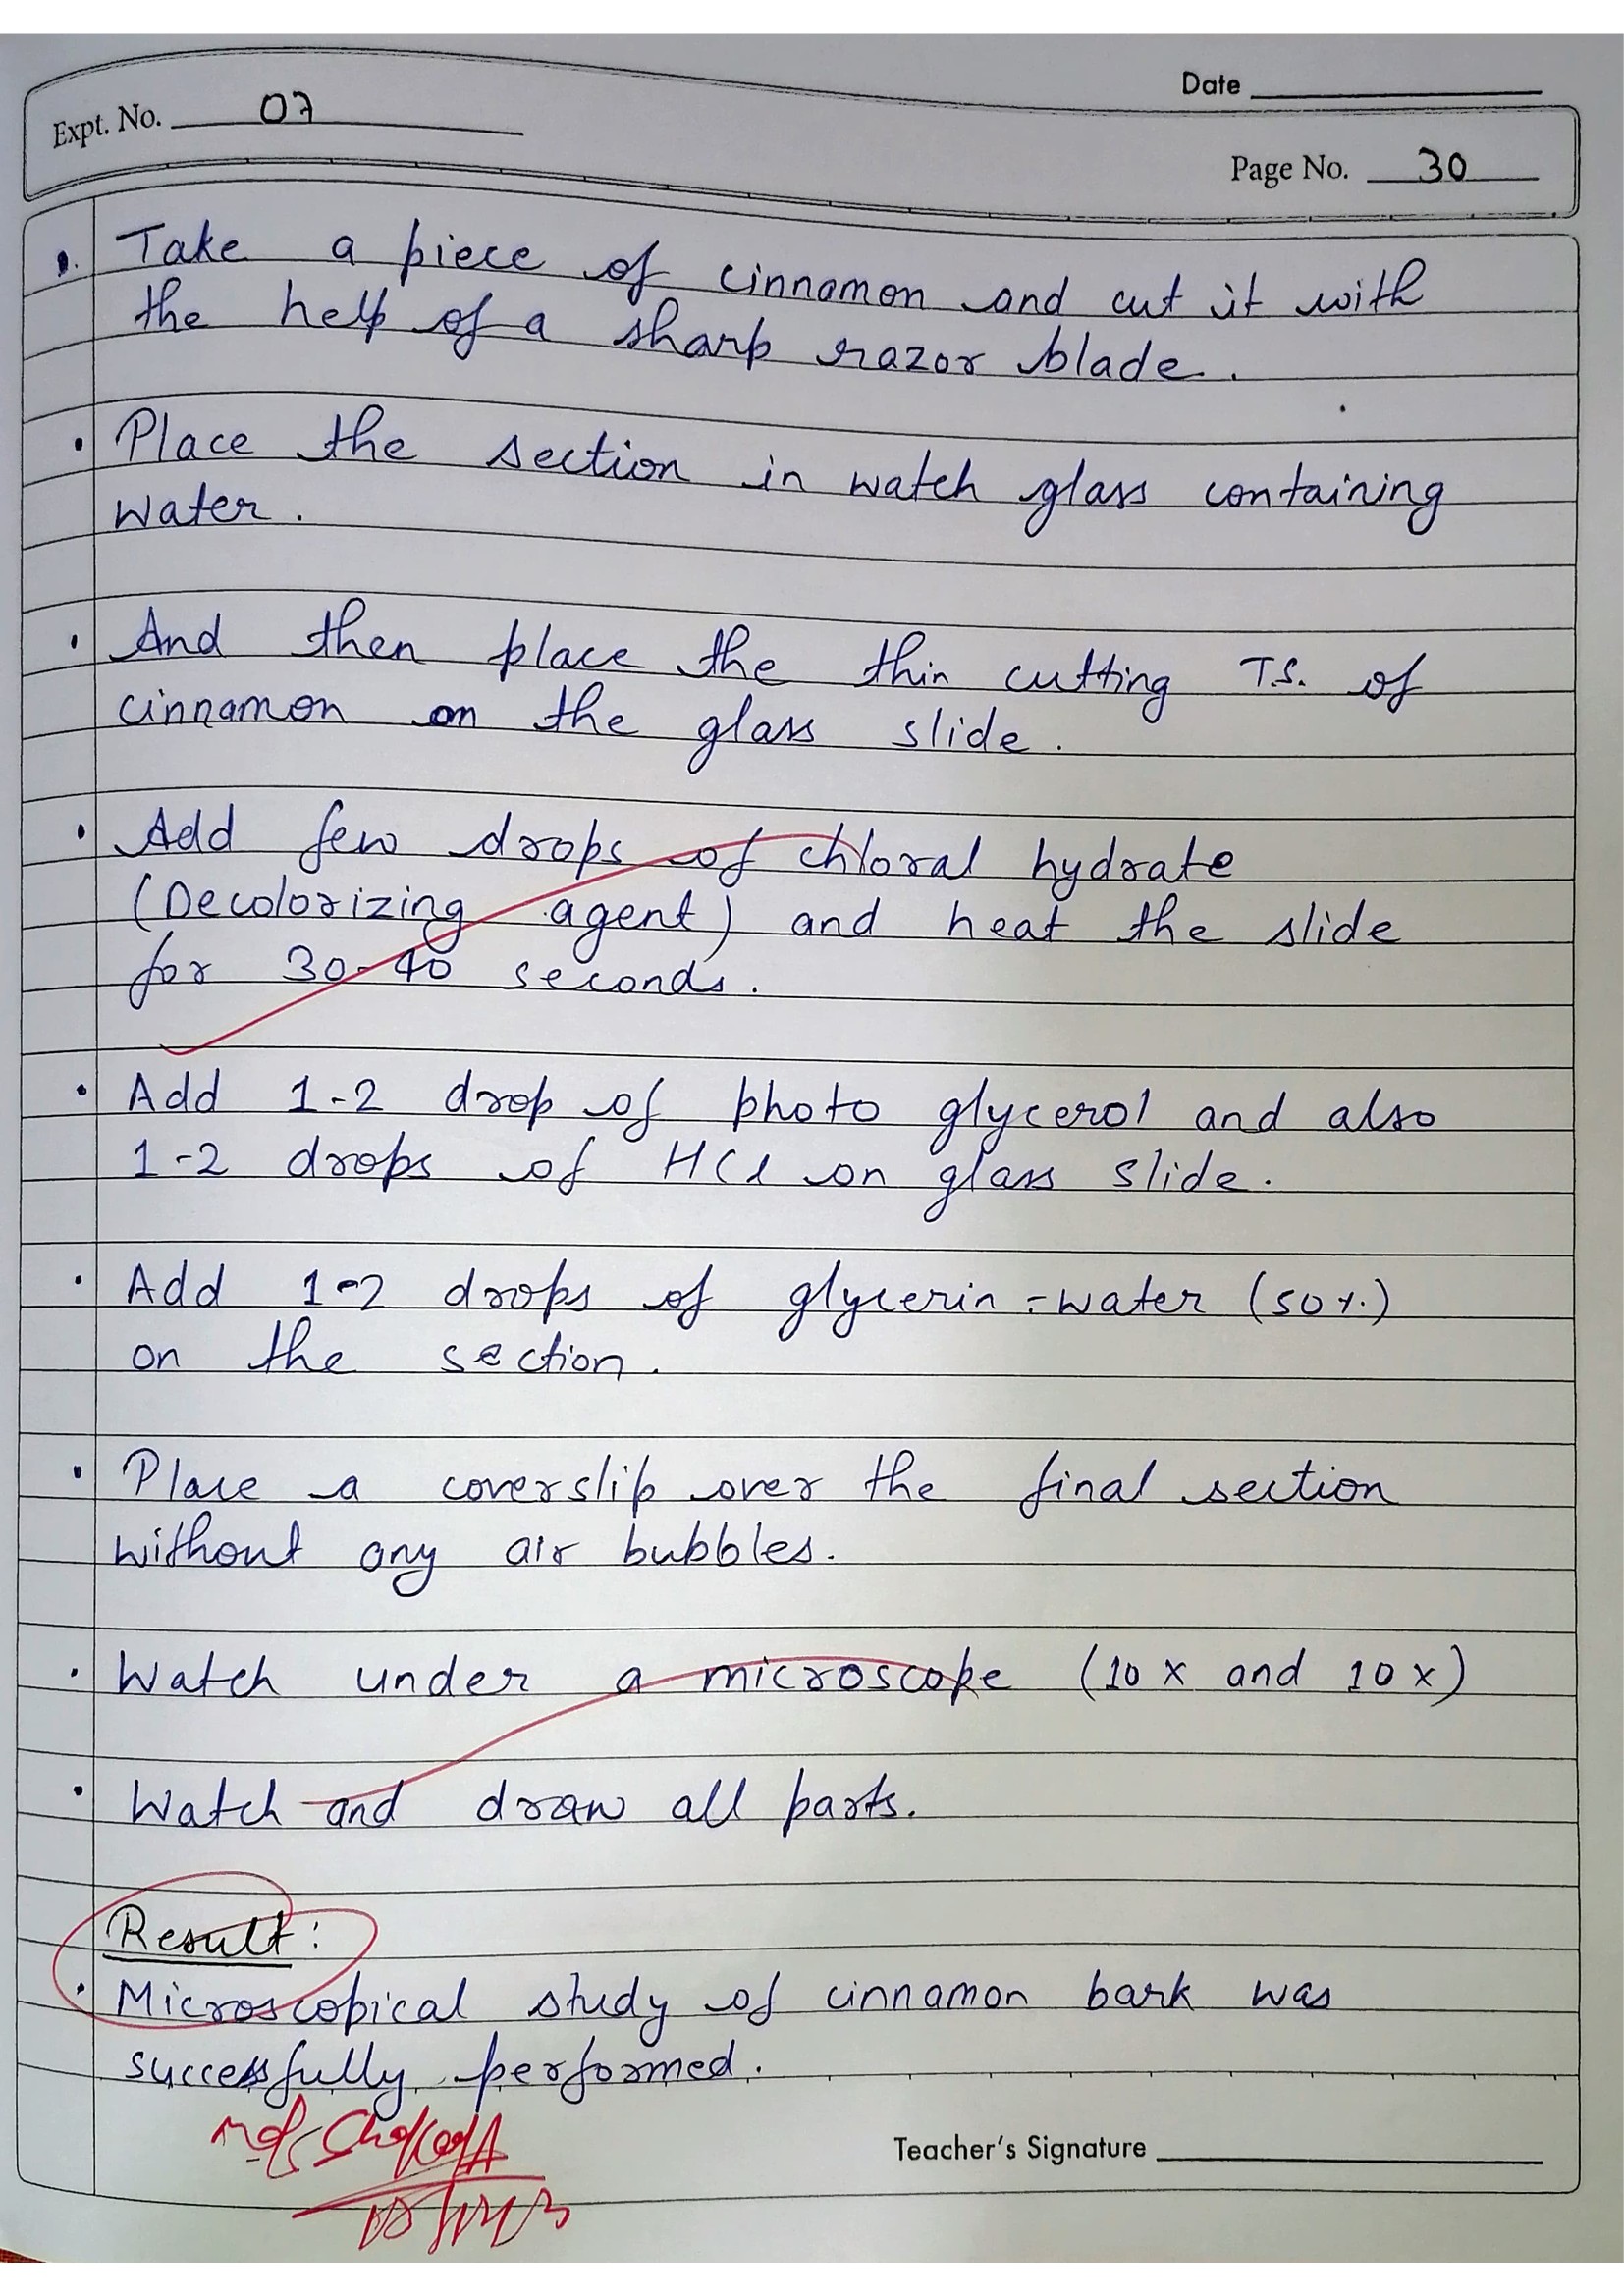 Date
Expt. No. 07
Page No. 30
Take a piece of cinnamon and cut it with
the help of a sharp razor blade.
• Place the section in watch glass containing
water.
• And then place the thin cutting T.S. of
cinnamon on the glass slide.
• Add few drops of chloral hydrate
(Decolorizing agent) and heat the slide
for 30-40 seconds.
• Add 1-2 drop of photo glycerol and also
1-2 drops of HCl on glass slide.
• Add 1-2 drops of glycerin-water (50%)
on the section.
• Place a coverslip over the final section
without any air bubbles.
• Watch under a microscope (10 x and 10 x)
• Watch and draw all parts.
Result:
• Microscopical study of cinnamon bark was
successfully performed.
Teacher's Signature